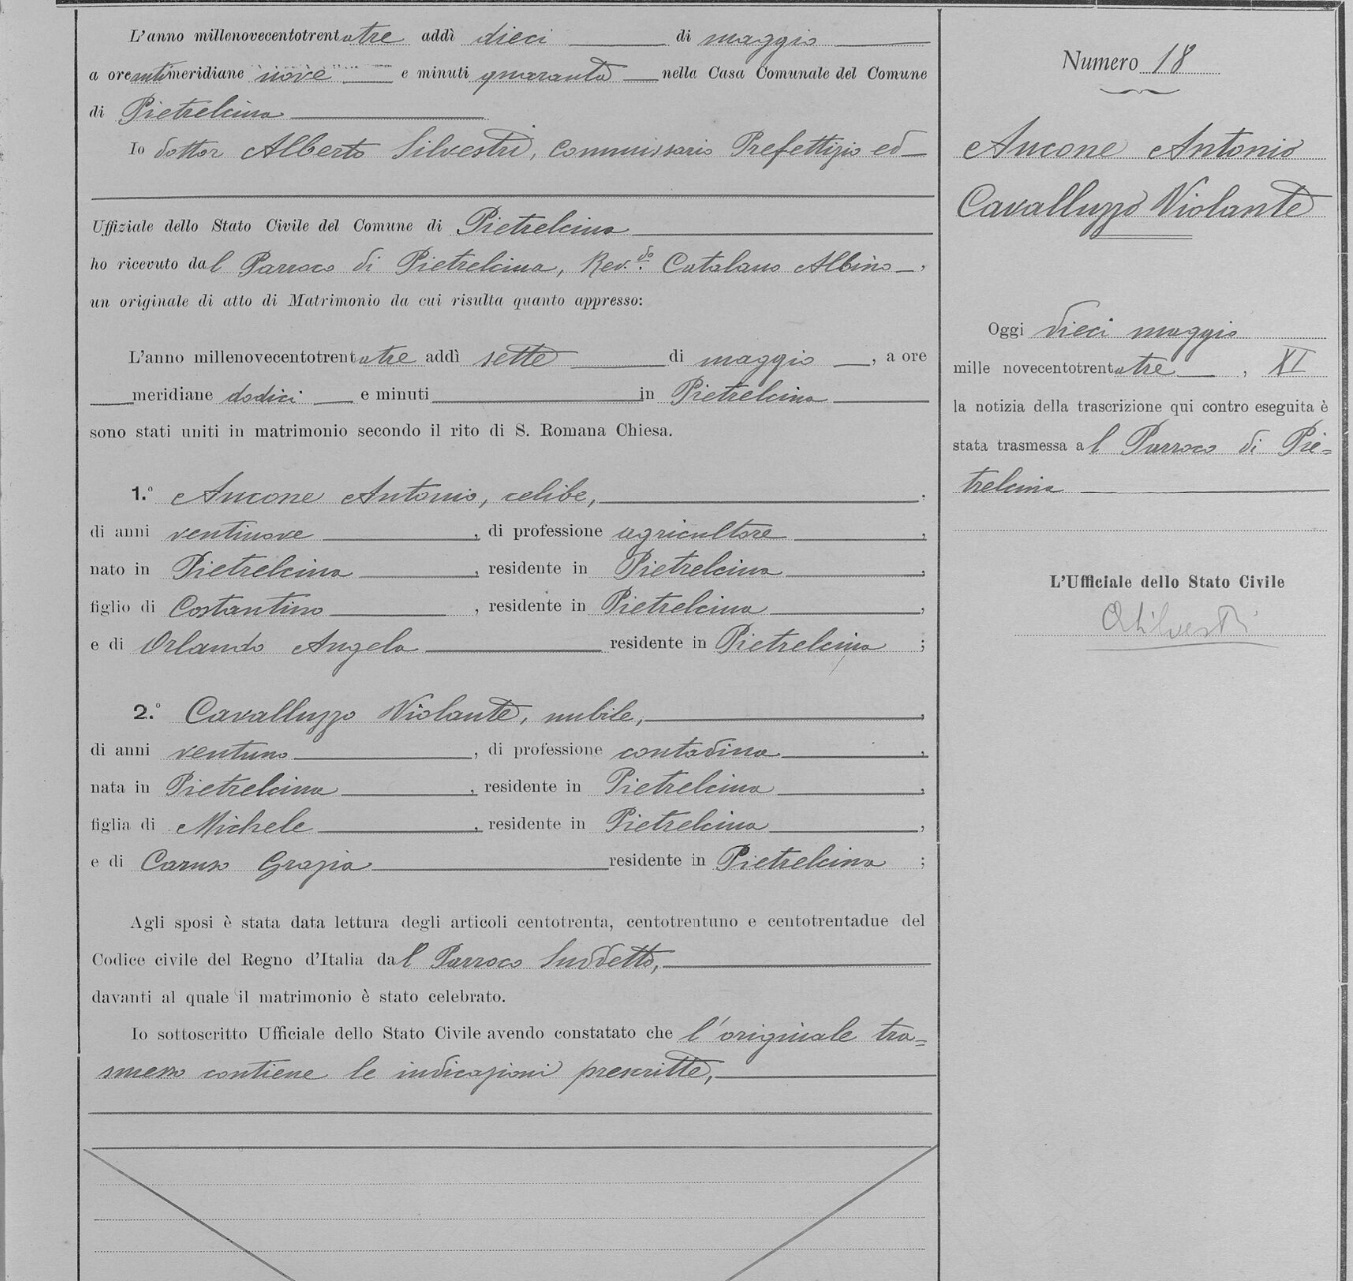 L'anno millenovecentotrentatre addì dieci di maggio
a ore antimeridiane nove e minuti quaranta nella Casa Comunale del Comune
di Pietrelcina
Io dottor Alberto Silvestri, Commissario Prefettizio ed
Uffiziale dello Stato Civile del Comune di Pietrelcina
ho ricevuto dal Parroco di Pietrelcina, Rev.do Catalano Albino,
un originale di atto di Matrimonio da cui risulta quanto appresso:
L'anno millenovecentotrentatre addì sette di maggio, a ore
meridiane dodici e minuti in Pietrelcina
sono stati uniti in matrimonio secondo il rito di S. Romana Chiesa.
1.° Ancone Antonio, celibe,
di anni ventinove, di professione agricultore,
nato in Pietrelcina, residente in Pietrelcina,
figlio di Costantino, residente in Pietrelcina,
e di Orlando Angela residente in Pietrelcina;
2.° Cavalluzzo Violante, nubile,
di anni ventuno, di professione contadina,
nata in Pietrelcina, residente in Pietrelcina,
figlia di Michele, residente in Pietrelcina,
e di Caruso Grazia residente in Pietrelcina;
Agli sposi è stata data lettura degli articoli centotrenta, centotrentuno e centotrentadue del
Codice civile del Regno d'Italia dal Parroco suddetto,
davanti al quale il matrimonio è stato celebrato.
Io sottoscritto Ufficiale dello Stato Civile avendo constatato che l'originale tra=
smesso contiene le indicazioni prescritte,
Numero 18
Ancone Antonio
Cavalluzzo Violante
Oggi dieci maggio
mille novecentotrentatre, XI
la notizia della trascrizione qui contro eseguita è
stata trasmessa al Parroco di Pie=
trelcina
L'Ufficiale dello Stato Civile
ASilvestri